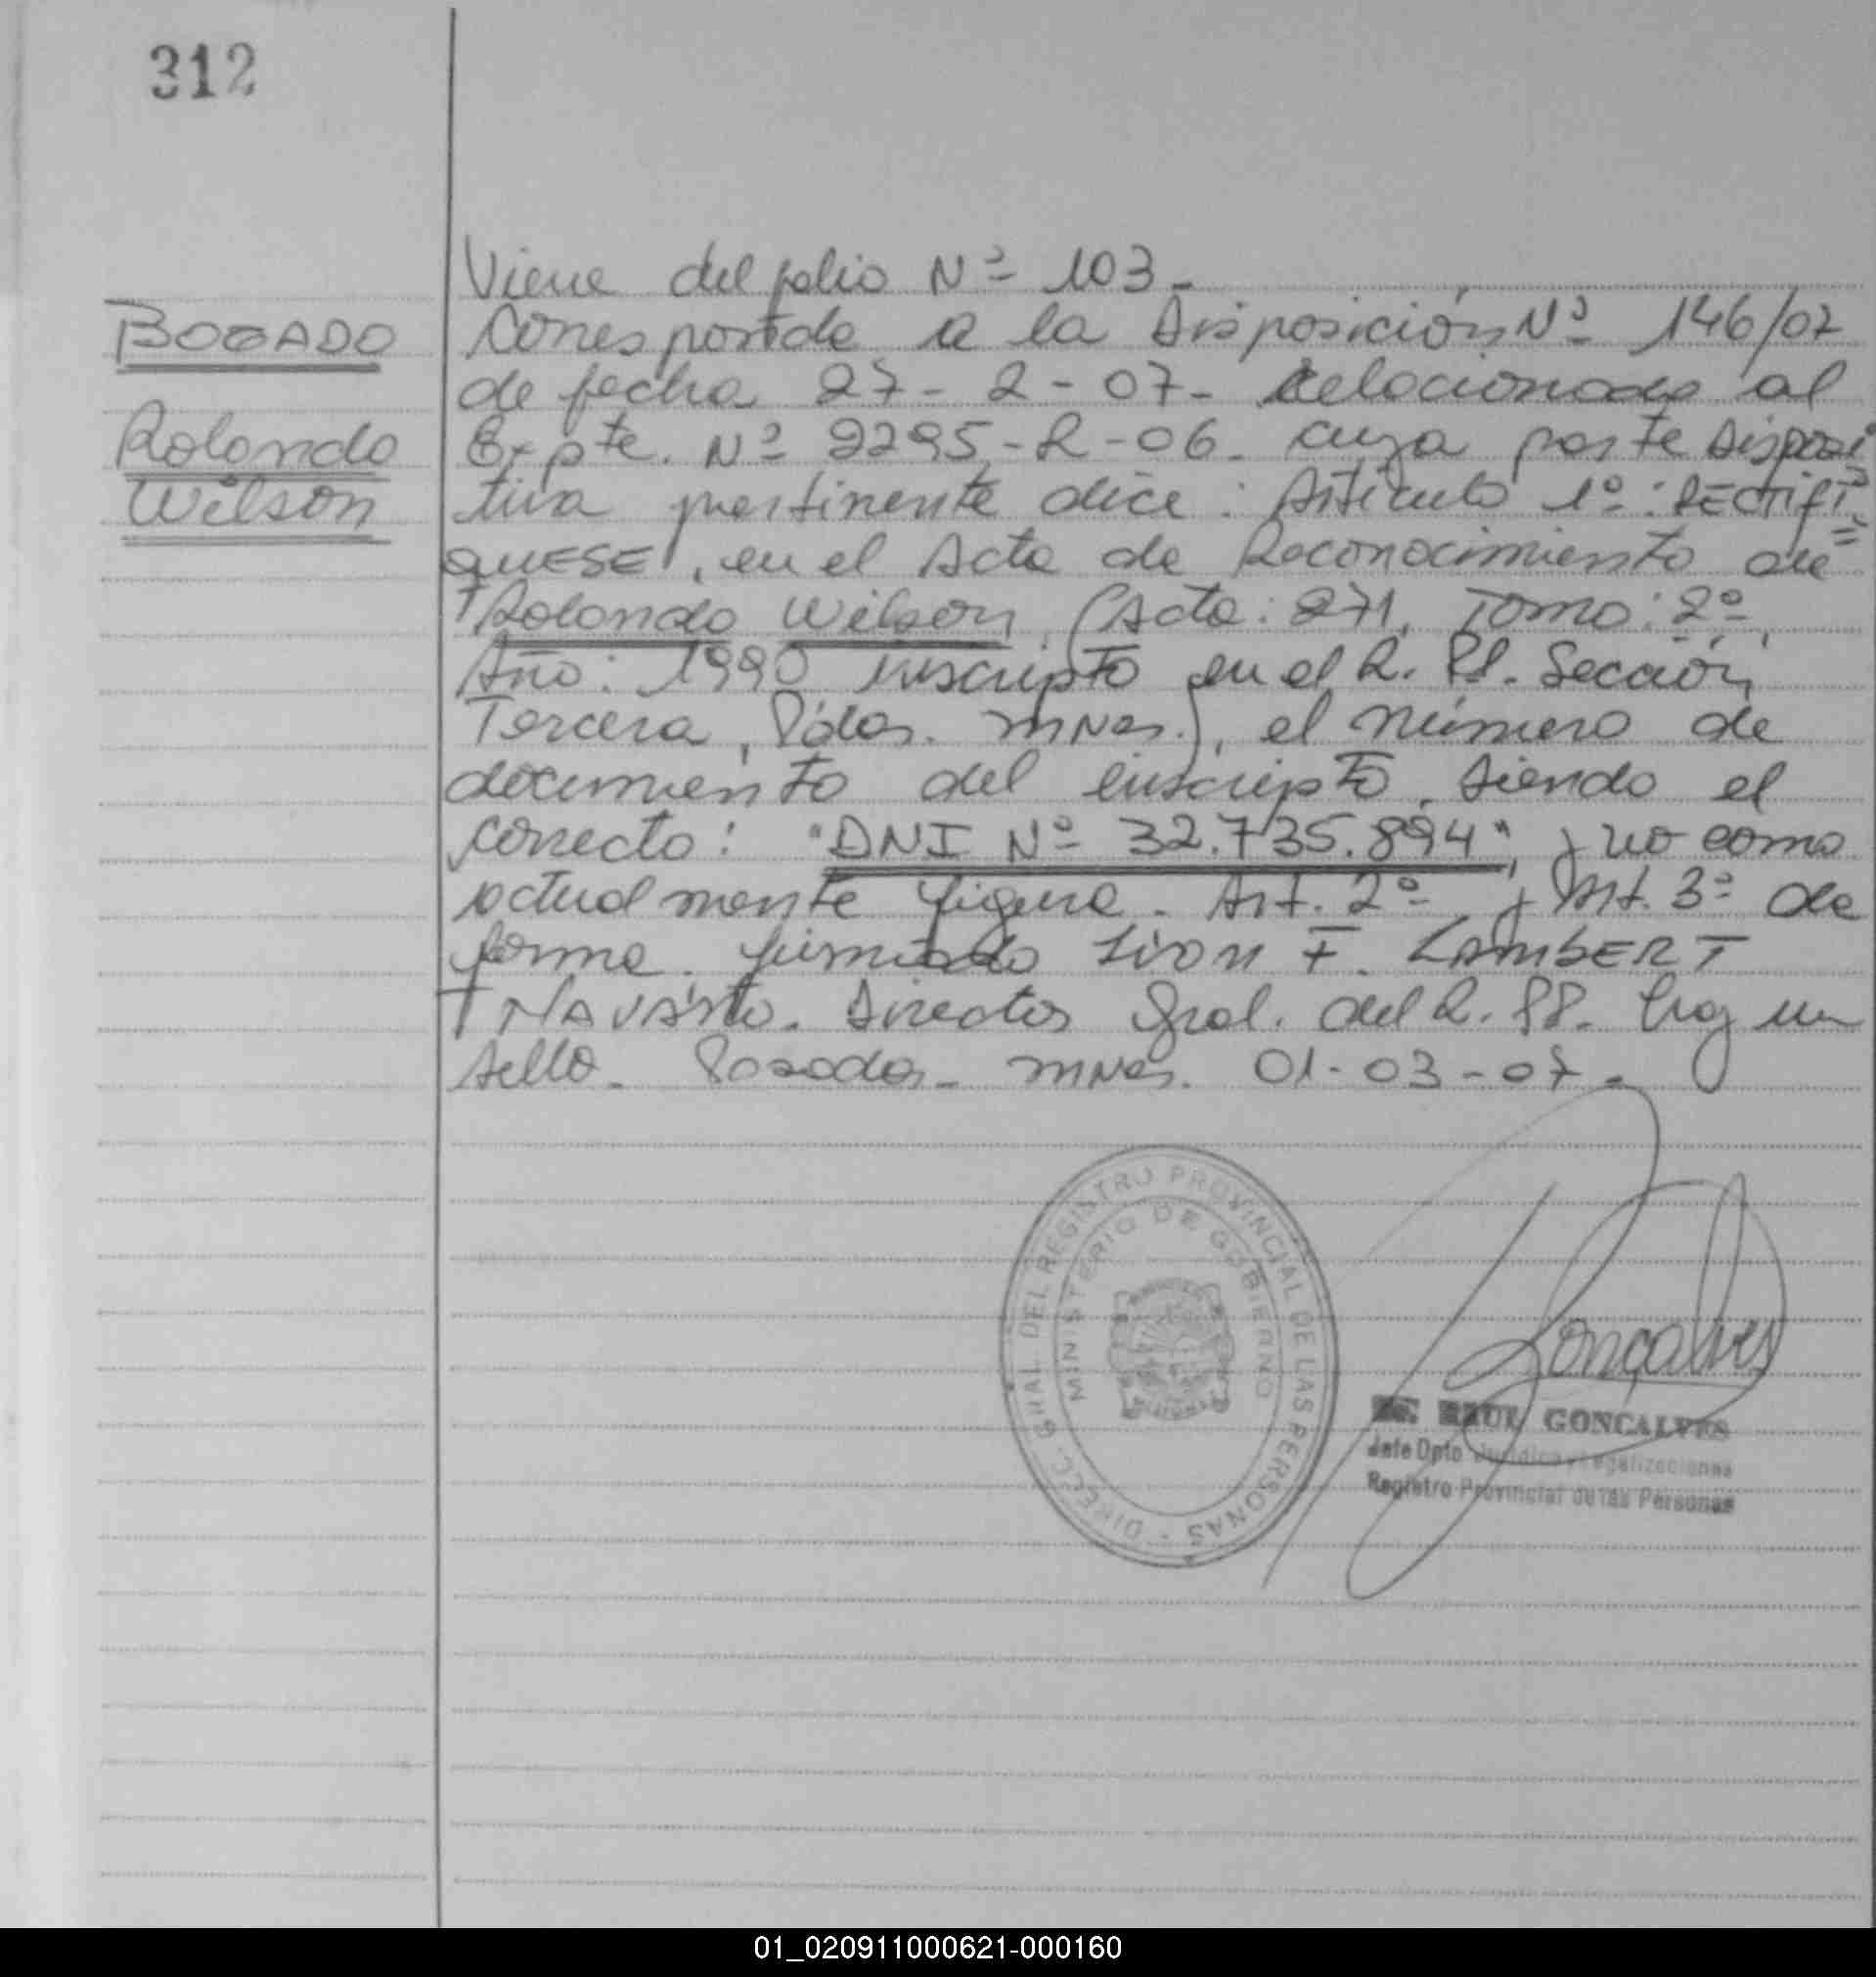 312
BOGADO
Rolando
Wilson
Viene del folio Nº 103-
Corresponde a la Disposición Nº 146/07
de fecha 27-2-07- Relacionada al
Expte. Nº 2295-R-06- cuya parte disposi
tiva pertinente dice: Artículo 1º: RECTIFI=
QUESE, en el Acta de Reconocimiento de
Rolando Wilson, (Acta: 271, Tomo: 2º,
Año: 1990 inscripto en el R. PP. Sección
Tercera, Pdas. Mnes.), el número de
documento del inscripto, siendo el
correcto: "DNI Nº 32.735.894", y no como
actualmente figura. Art. 2º y Art. 3º de
forma. firmado F. LAMBERT
Director Gral. del R. PP. Hay un
sello. Posadas- Mnes. 01-03-07-
DIREC. GRAL. DEL REGISTRO PROVINCIAL DE LAS PERSONAS -
MINISTERIO DE GOBIERNO
Gonçalves
RAUL GONCALVES
Jefe Dpto Jurídica y Legalizaciones
Registro Provincial de las Personas
01_020911000621-000160